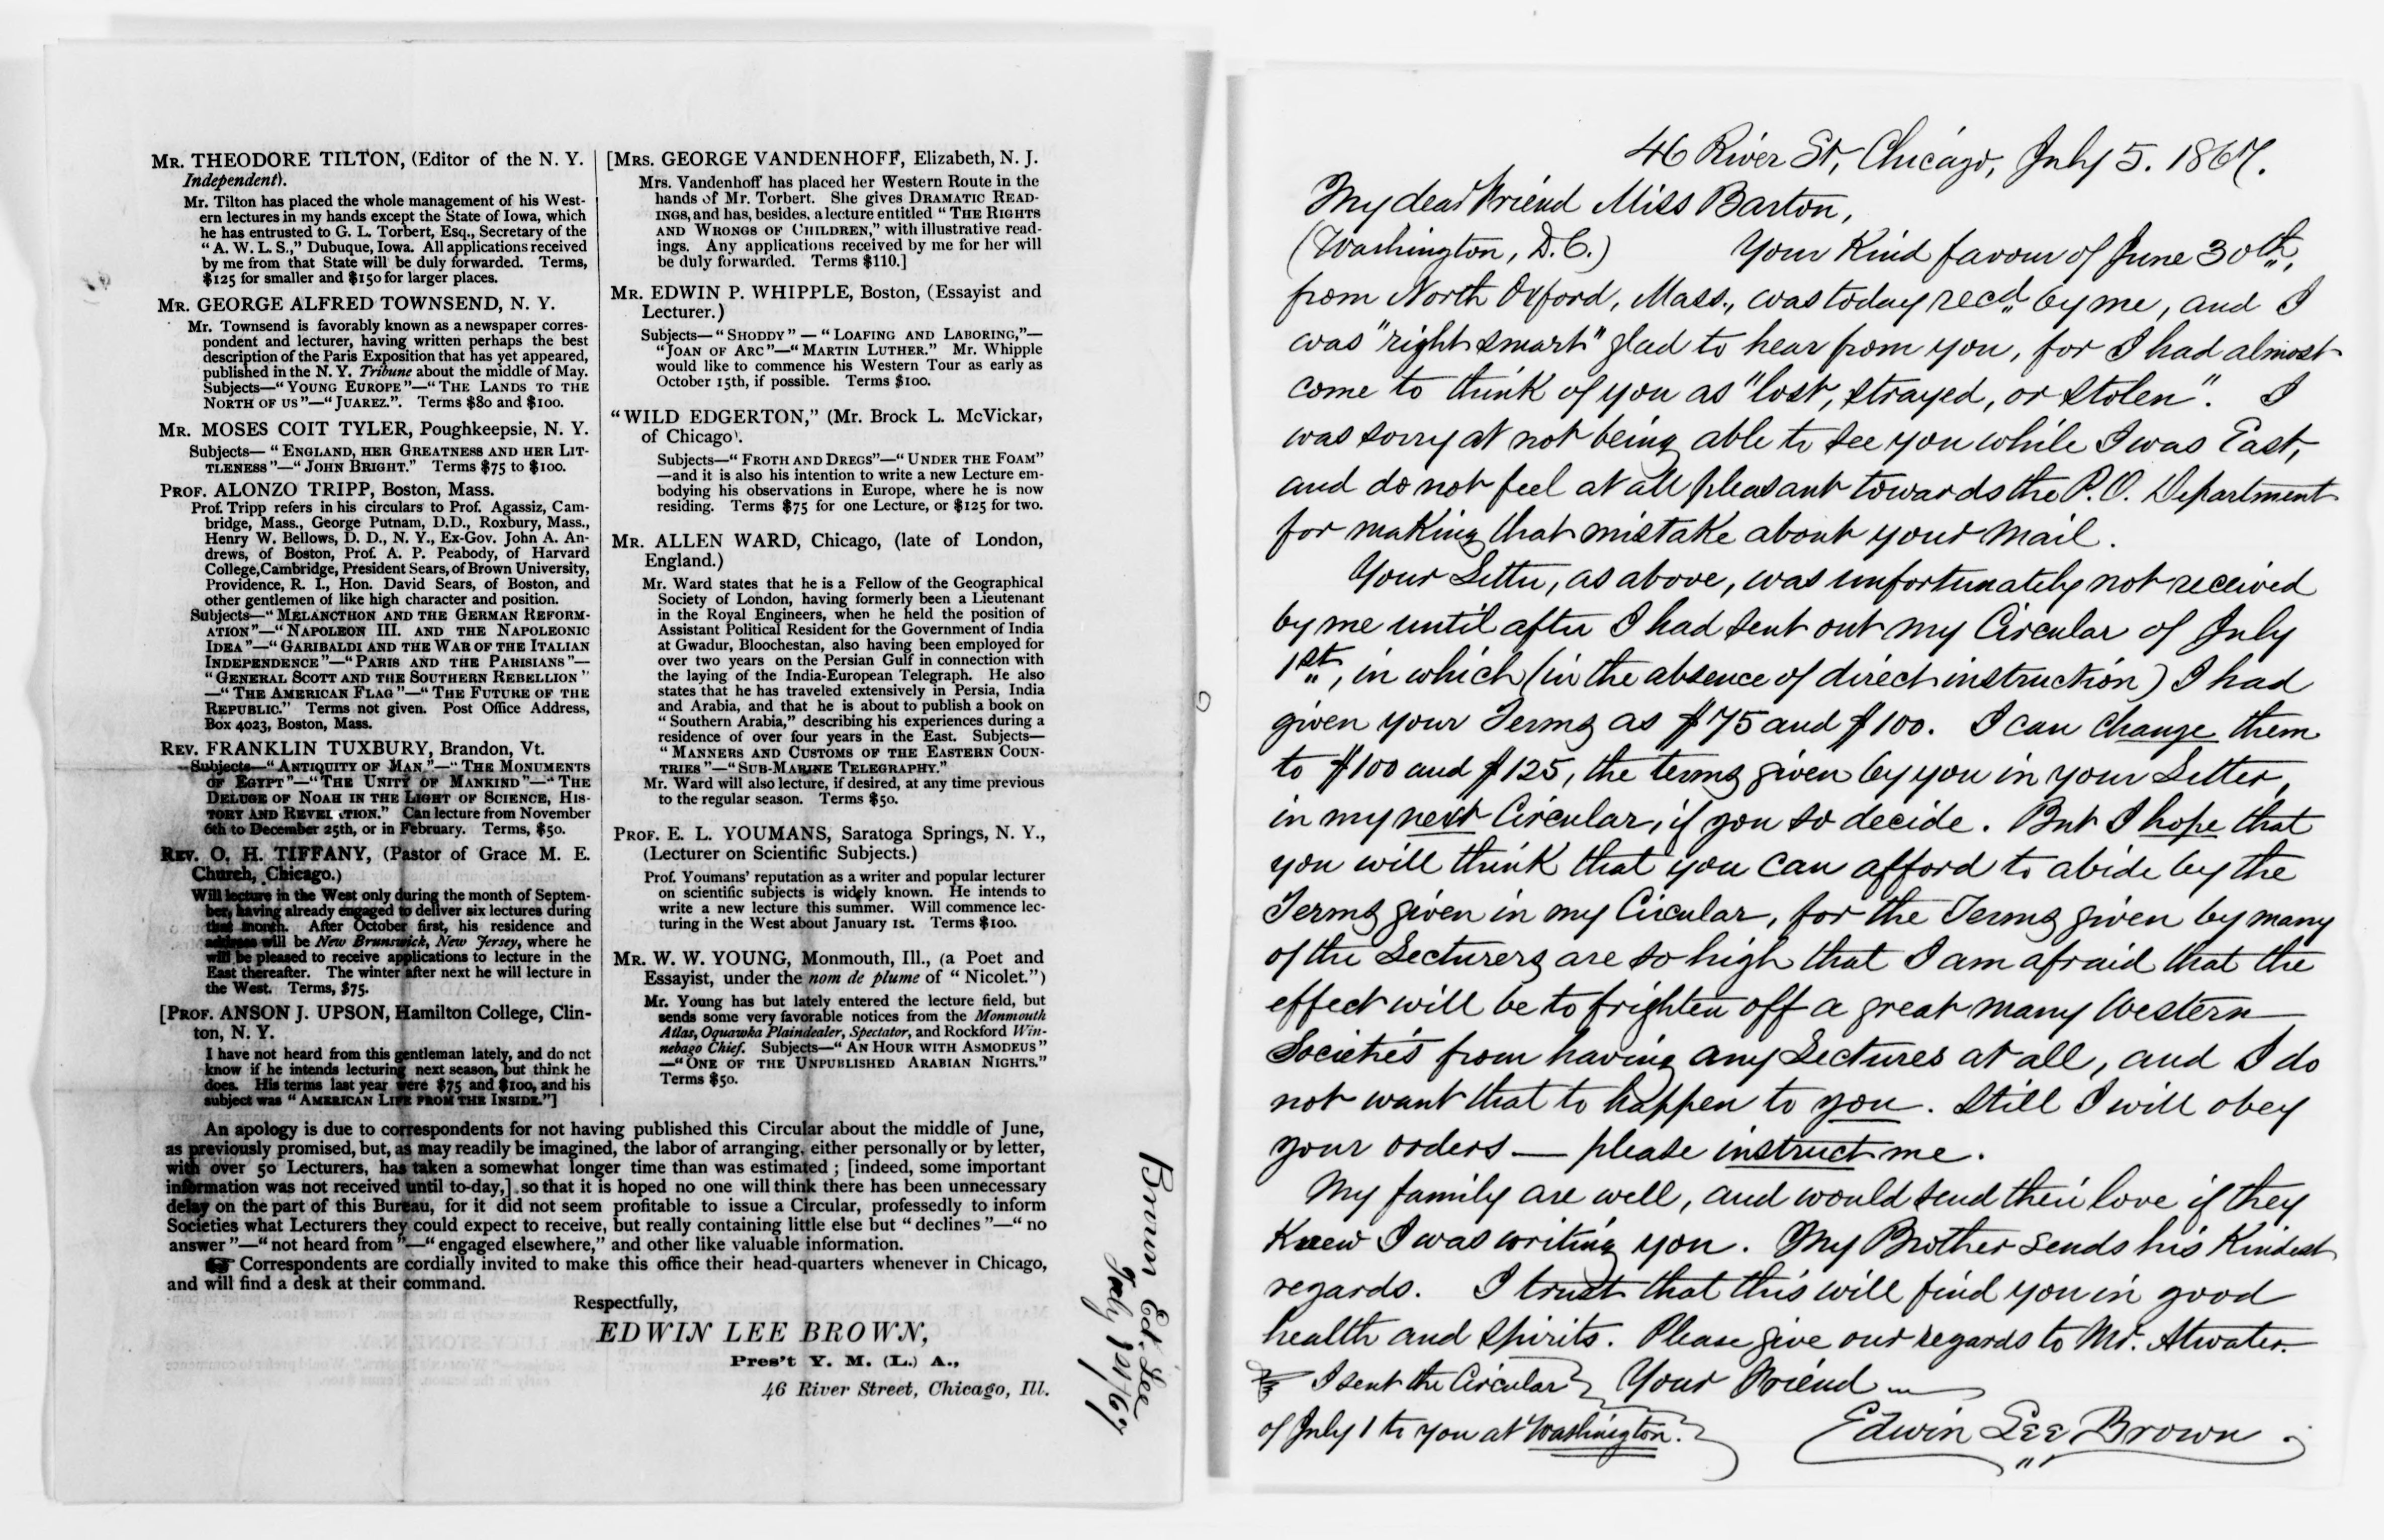 MR. THEODORE TILTON, (Editor of the N. Y.
Independent).
Mr. Tilton has placed the whole management of his West-
ern lectures in my hands except the State of Iowa, which
he has entrusted to G. L. Torbert, Esq., Secretary of the
"A. W. L. S.," Dubuque, Iowa. All applications received
by me from that State will be duly forwarded. Terms,
$125 for smaller and $150 for larger places.
MR. GEORGE ALFRED TOWNSEND, N. Y.
Mr. Townsend is favorably known as a newspaper corres-
pondent and lecturer, having written perhaps the best
description of the Paris Exposition that has yet appeared,
published in the N. Y. Tribune about the middle of May.
Subjects—"YOUNG EUROPE"—"THE LANDS TO THE
NORTH OF US"—"JUAREZ.". Terms $80 and $100.
MR. MOSES COIT TYLER, Poughkeepsie, N. Y.
Subjects—"ENGLAND, HER GREATNESS AND HER LIT-
TLENESS"—"JOHN BRIGHT." Terms $75 to $100.
PROF. ALONZO TRIPP, Boston, Mass.
Prof. Tripp refers in his circulars to Prof. Agassiz, Cam-
bridge, Mass., George Putnam, D.D., Roxbury, Mass.,
Henry W. Bellows, D. D., N. Y., Ex-Gov. John A. An-
drews, of Boston, Prof. A. P. Peabody, of Harvard
College, Cambridge, President Sears, of Brown University,
Providence, R. I., Hon. David Sears, of Boston, and
other gentlemen of like high character and position.
Subjects—"MELANCTHON AND THE GERMAN REFORM-
ATION"—"NAPOLEON III. AND THE NAPOLEONIC
IDEA"—"GARIBALDI AND THE WAR OF THE ITALIAN
INDEPENDENCE"—"PARIS AND THE PARISIANS"—
"GENERAL SCOTT AND THE SOUTHERN REBELLION"
—"THE AMERICAN FLAG"—"THE FUTURE OF THE
REPUBLIC." Terms not given. Post Office Address,
Box 4023, Boston, Mass.
REV. FRANKLIN TUXBURY, Brandon, Vt.
Subjects—"ANTIQUITY OF MAN."—"THE MONUMENTS
OF EGYPT"—"THE UNITY OF MANKIND"—"THE
DELUGE OF NOAH IN THE LIGHT OF SCIENCE, HIS-
TORY AND REVELATION." Can lecture from November
6th to December 25th, or in February. Terms, $50.
REV. O. H. TIFFANY, (Pastor of Grace M. E.
Church, Chicago.)
Will lecture in the West only during the month of Septem-
ber, having already engaged to deliver six lectures during
that month. After October first, his residence and
address will be New Brunswick, New Jersey, where he
will be pleased to receive applications to lecture in the
East thereafter. The winter after next he will lecture in
the West. Terms, $75.
[PROF. ANSON J. UPSON, Hamilton College, Clin-
ton, N. Y.
I have not heard from this gentleman lately, and do not
know if he intends lecturing next season, but think he
does. His terms last year were $75 and $100, and his
subject was "AMERICAN LIFE FROM THE INSIDE."]
[MRS. GEORGE VANDENHOFF, Elizabeth, N. J.
Mrs. Vandenhoff has placed her Western Route in the
hands of Mr. Torbert. She gives DRAMATIC READ-
INGS, and has, besides, a lecture entitled "THE RIGHTS
AND WRONGS OF CHILDREN," with illustrative read-
ings. Any applications received by me for her will
be duly forwarded. Terms $110.]
MR. EDWIN P. WHIPPLE, Boston, (Essayist and
Lecturer.)
Subjects—"SHODDY"—"LOAFING AND LABORING,"—
"JOAN OF ARC"—"MARTIN LUTHER." Mr. Whipple
would like to commence his Western Tour as early as
October 15th, if possible. Terms $100.
"WILD EDGERTON," (Mr. Brock L. McVickar,
of Chicago).
Subjects—"FROTH AND DREGS"—"UNDER THE FOAM"
—and it is also his intention to write a new Lecture em-
bodying his observations in Europe, where he is now
residing. Terms $75 for one Lecture, or $125 for two.
MR. ALLEN WARD, Chicago, (late of London,
England.)
Mr. Ward states that he is a Fellow of the Geographical
Society of London, having formerly been a Lieutenant
in the Royal Engineers, when he held the position of
Assistant Political Resident for the Government of India
at Gwadur, Bloochestan, also having been employed for
over two years on the Persian Gulf in connection with
the laying of the India-European Telegraph. He also
states that he has traveled extensively in Persia, India
and Arabia, and that he is about to publish a book on
"Southern Arabia," describing his experiences during a
residence of over four years in the East. Subjects—
"MANNERS AND CUSTOMS OF THE EASTERN COUN-
TRIES"—"SUB-MARINE TELEGRAPHY."
Mr. Ward will also lecture, if desired, at any time previous
to the regular season. Terms $50.
PROF. E. L. YOUMANS, Saratoga Springs, N. Y.,
(Lecturer on Scientific Subjects.)
Prof. Youmans' reputation as a writer and popular lecturer
on scientific subjects is widely known. He intends to
write a new lecture this summer. Will commence lec-
turing in the West about January 1st. Terms $100.
MR. W. W. YOUNG, Monmouth, Ill., (a Poet and
Essayist, under the nom de plume of "Nicolet.")
Mr. Young has but lately entered the lecture field, but
sends some very favorable notices from the Monmouth
Atlas, Oquawka Plaindealer, Spectator, and Rockford Win-
nebago Chief. Subjects—"AN HOUR WITH ASMODEUS"
—"ONE OF THE UNPUBLISHED ARABIAN NIGHTS."
Terms $50.
An apology is due to correspondents for not having published this Circular about the middle of June,
as previously promised, but, as may readily be imagined, the labor of arranging, either personally or by letter,
with over 50 Lecturers, has taken a somewhat longer time than was estimated; [indeed, some important
information was not received until to-day,] so that it is hoped no one will think there has been unnecessary
delay on the part of this Bureau, for it did not seem profitable to issue a Circular, professedly to inform
Societies what Lecturers they could expect to receive, but really containing little else but "declines"—"no
answer"—"not heard from"—"engaged elsewhere," and other like valuable information.
☞ Correspondents are cordially invited to make this office their head-quarters whenever in Chicago,
and will find a desk at their command.
Respectfully,
EDWIN LEE BROWN,
Pres't Y. M. (L.) A.,
46 River Street, Chicago, Ill.
Brown Ed. Lee
July 1st/67
46 River St, Chicago, July 5. 1867.
My dear Friend Miss Barton,
(Washington, D.C.) Your Kind favour of June 30th,
from North Oxford, Mass., was today recd by me, and I
was "right smart" glad to hear from you, for I had almost
come to think of you as "lost, strayed, or stolen". I
was sorry at not being able to see you while I was East,
and do not feel at all pleasant towards the P.O. Department
for making that mistake about your mail.
Your Letter, as above, was unfortunately not received
by me until after I had sent out my Circular of July
1st, in which (in the absence of direct instruction) I had
given your Terms as $75 and $100. I can change them
to $100 and $125, the terms given by you in your Letter,
in my next Circular, if you so decide. But I hope that
you will think that you can afford to abide by the
Terms given in my Circular, for the Terms given by many
of the Lecturers are so high that I am afraid that the
effect will be to frighten off a great many Western
Societies from having any Lectures at all, and I do
not want that to happen to you. Still I will obey
your orders — please instruct me.
My family are well, and would send their love if they
Knew I was writing you. My Brother sends his Kindest
regards. I trust that this will find you in good
health and spirits. Please give our regards to Mr. Atwater.
☞ I sent the Circular Your Friend
of July 1 to you at Washington. Edwin Lee Brown.